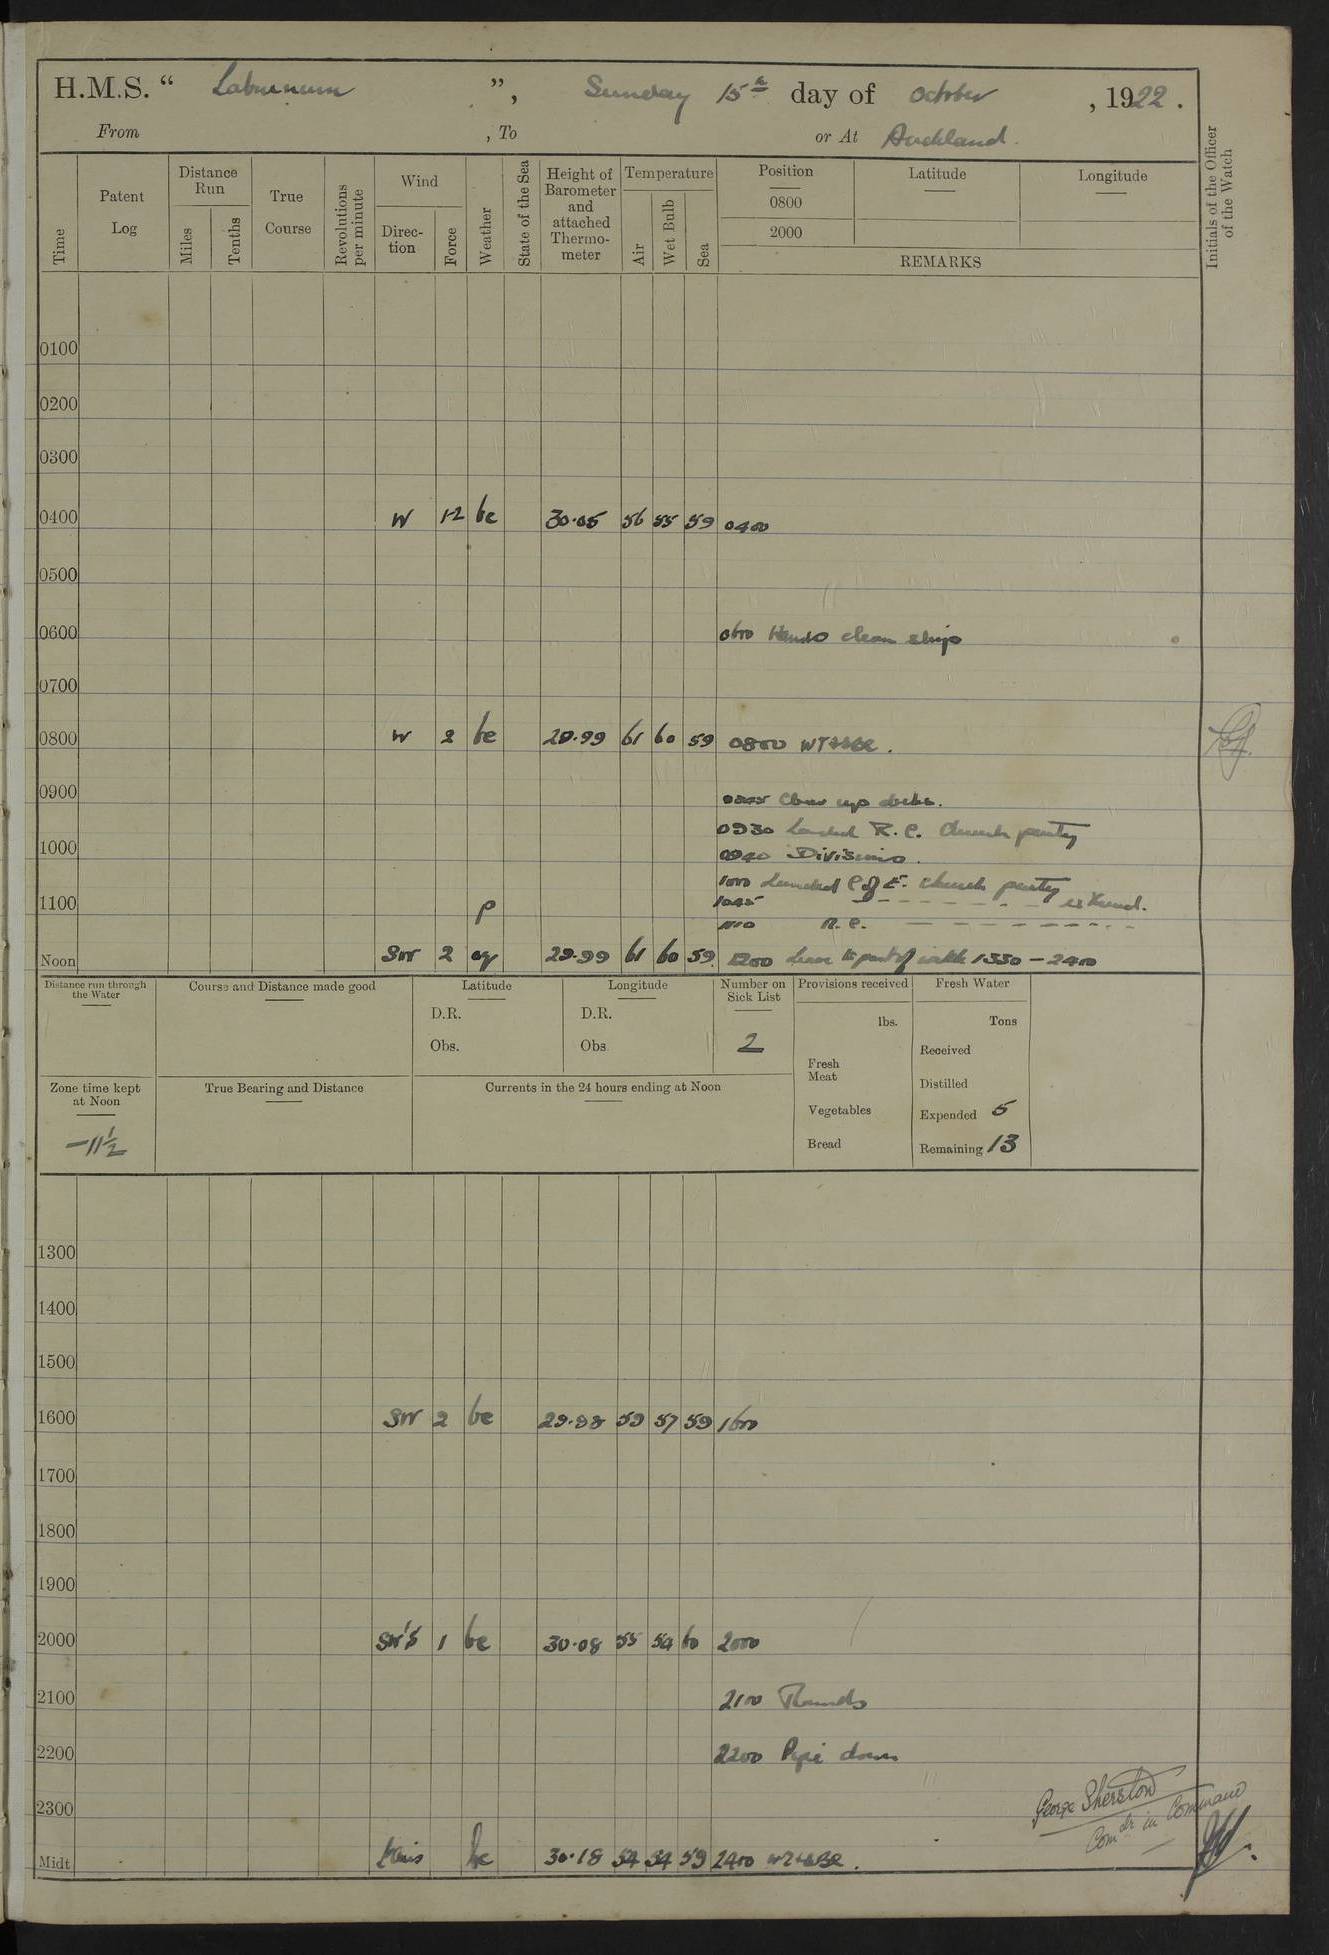 H.M.S. “ Laburnum ”, Sunday 15th day of October, 1922.
From , To or At Auckland.
Time
Patent Log
Distance Run
Miles
Tenths
True Course
Revolutions per minute
Wind
Direc-tion
Force
Weather
State of the Sea
Height of Barometer and attached Thermo-meter
Temperature
Air
Wet Bulb
Sea
Position
0800
2000
Latitude
Longitude
REMARKS
Initials of the Officer of the Watch
0100
0200
0300
0400 W 1-2 bc 30.05 56 55 59 0400
0500
0600 0600 Hands clean ship
0700
0800 W 2 bc 29.99 61 60 59 0800
0900
0845 Clear up decks.
0930 Landed R.C. Church party
1000
0940 Divisions.
1000 Landed C of E. church party
1100 p
1045 – – – – – returned.
1110 R.C. – – – – – –
Noon SW 2 29.99 61 60 59 1200 Leave to part of watch 1330 – 2400
Distance run through the Water
Course and Distance made good
Latitude
D.R.
Obs.
Longitude
D.R.
Obs
Number on Sick List
2
Provisions received
lbs.
Fresh Meat
Vegetables
Bread
Fresh Water
Tons
Received
Distilled
Expended 5
Remaining 13
Zone time kept at Noon
–11½
True Bearing and Distance
Currents in the 24 hours ending at Noon
1300
1400
1500
1600 SW 2 bc 29.98 59 57 59 1600
1700
1800
1900
2000 SW'S 1 bc 30.08 55 54 60 2000
2100 2100 Rounds
2200 2200 Pipe down
2300
George Sherston
Comdr in Command
Midt bc 30.18 54 54 59 2400